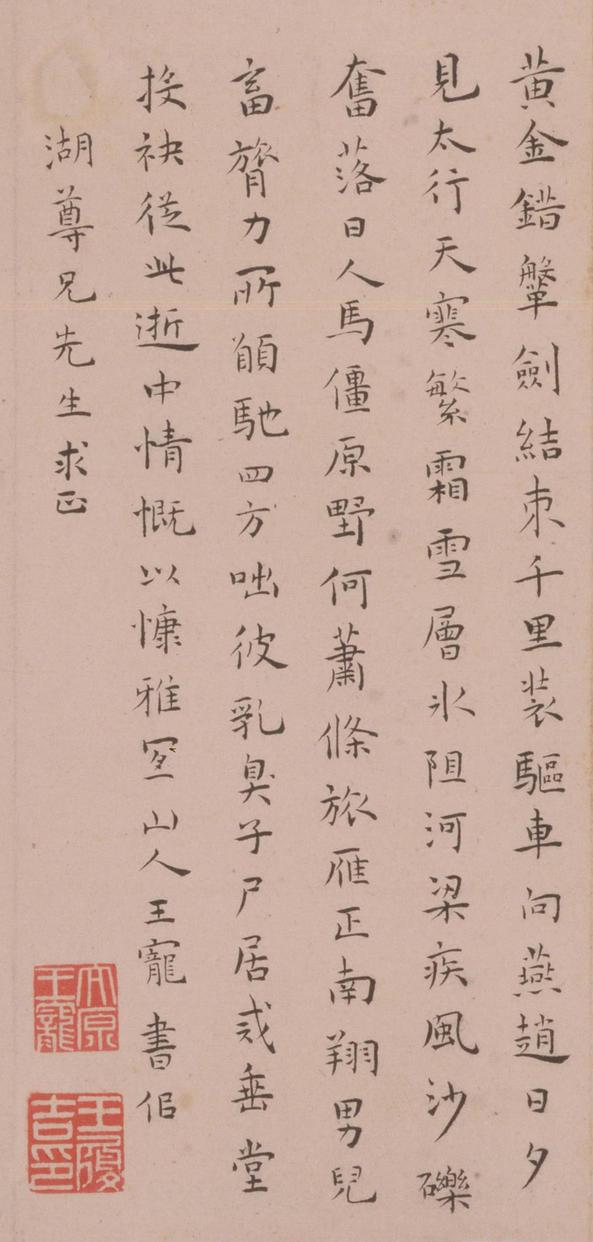 黃金錯鞶劍結束千里裝驅車向燕趙日夕
見太行天寒繁霜雪層氷阻河梁疾風沙礫
奮落日人馬僵原野何蕭條旅雁正南翔男兒
畜膂力所願馳四方咄彼乳臭子尸居戒垂堂
投袂從此逝中情慨以慷雅宜山人王寵書似
湖尊兄先生求正
太原王寵
王履吉印